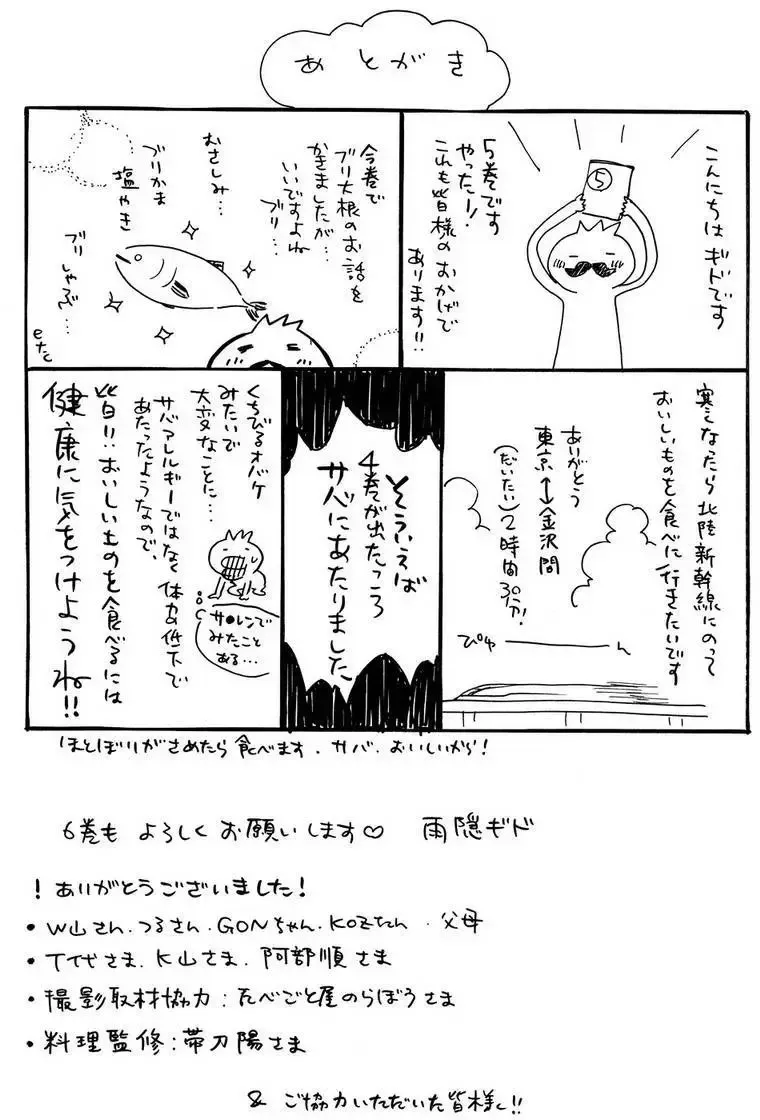 あとがき
こんにちはギドです
5巻です
やったー!
これも皆様のおかげで
あります!!
⑤
今巻で
ブリ大根のお話を
かきましたが…
いいですよね
ブリ…
おさしみ…
ブリかま
塩やき
ブリ
しゃぶ…
etc
寒くなったら北陸新幹線にのって
おいしいものを食べに行きたいです
ありがとう
東京↔金沢間
(だいたい)2時間30分!
ぴゅーーん
そういえば
4巻が出たころ
サバにあたりました
くちびるオバケ
みたいで
大変なことに…
サ●レンで
みたこと
ある…
サバアレルギーではなく体力低下で
あたったようなので、
皆!!おいしいものを食べるには
健康に気をつけようね!!
ほとぼりがさめたら食べます.サバ.おいしいから!
6巻も よろしくお願いします♡ 雨隠ギド
!ありがとうございました!
・W山さん.つるさん.GONちゃん.KOZたん.父母
・T代さま.K山さま.阿部順さま
・撮影取材協力:たべごと屋のらぼうさま
・料理監修:帯刀陽さま
& ご協力いただいた皆様へ!!